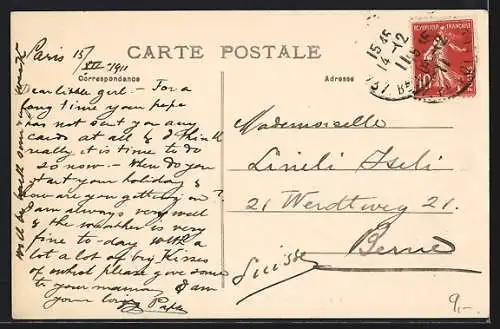 CARTE POSTALE
Correspondance
Adresse
Paris 15/
XII 1911
Dear little girl – For a
long time your papa
has not sent you any
cards at all & I think
really it is time to do
so now – When do you
start your holiday &
how are you getting on?
I am always very well
& the weather is very
fine to-day with a
lot a lot of big Kisses
of which please give some
to your mamma I am
your loving Papa
Will be well soon
Mademoiselle
Lineli Iseli
21 Werdtweg 21.
Berne
Suisse
REPUBLIQUE FRANÇAISE
10
15 45
14-12
11
9,-